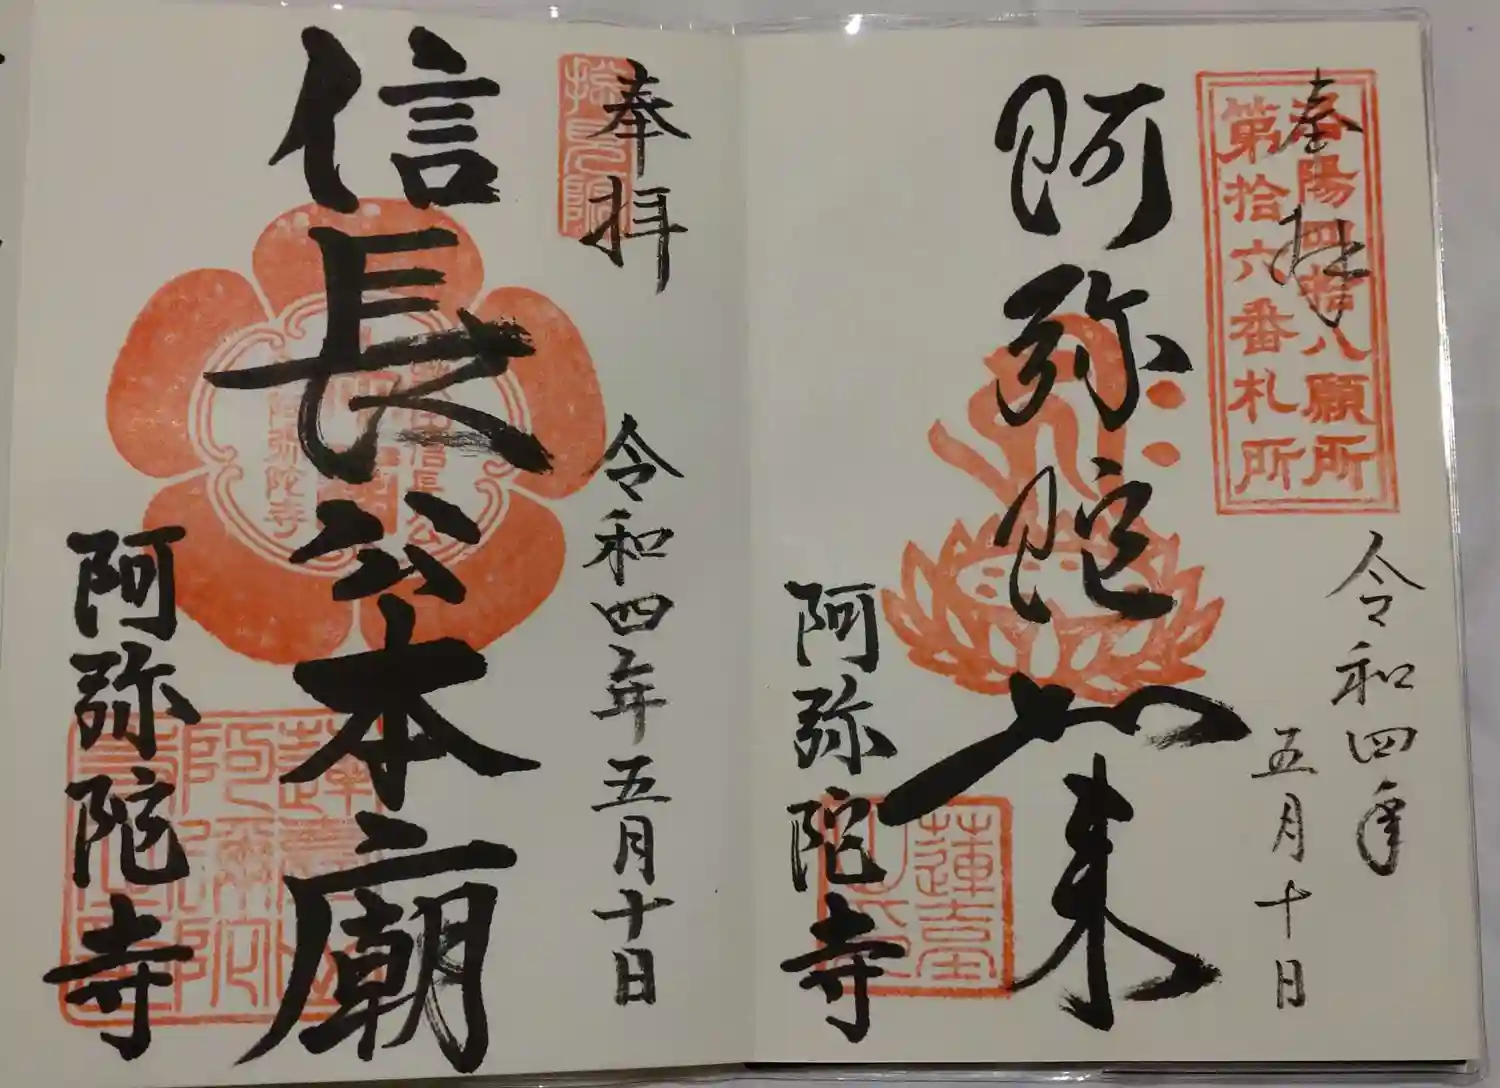 洛陽四拾八願所
第拾六番札所
奉拝
令和四年
五月十日
阿弥陀如来
阿弥陀寺
蓮臺
奉拝
捴見院
令和四年五月十日
信長公本廟
阿弥陀寺
阿弥陀寺